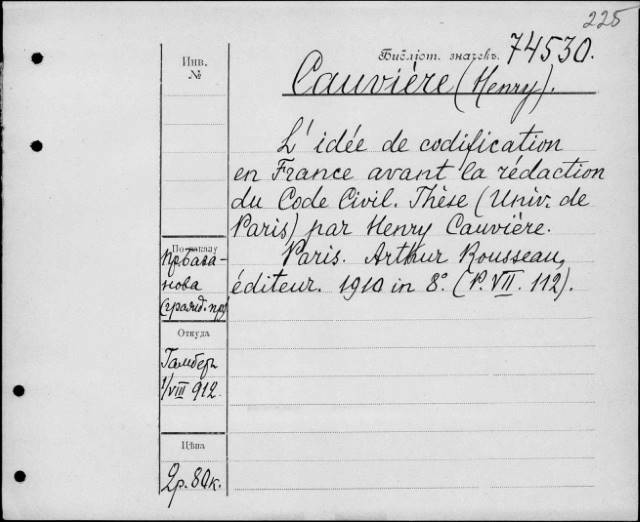 225
Библіот. значекъ. 74530.
Инв.
№
Cauvière (Henry).
L'idée de codification
en France avant la rédaction
du Code Civil. Thèse (Univ. de
Paris) par Henry Cauvière.
Paris. Arthur Rousseau,
éditeur. 1910 in 8º. (P. VII. 112).
По заказу
Пр. База-
нова
(гражд. пр.)
Откуда
Гамберъ
1/VIII 912.
Цѣна
2р. 80к.